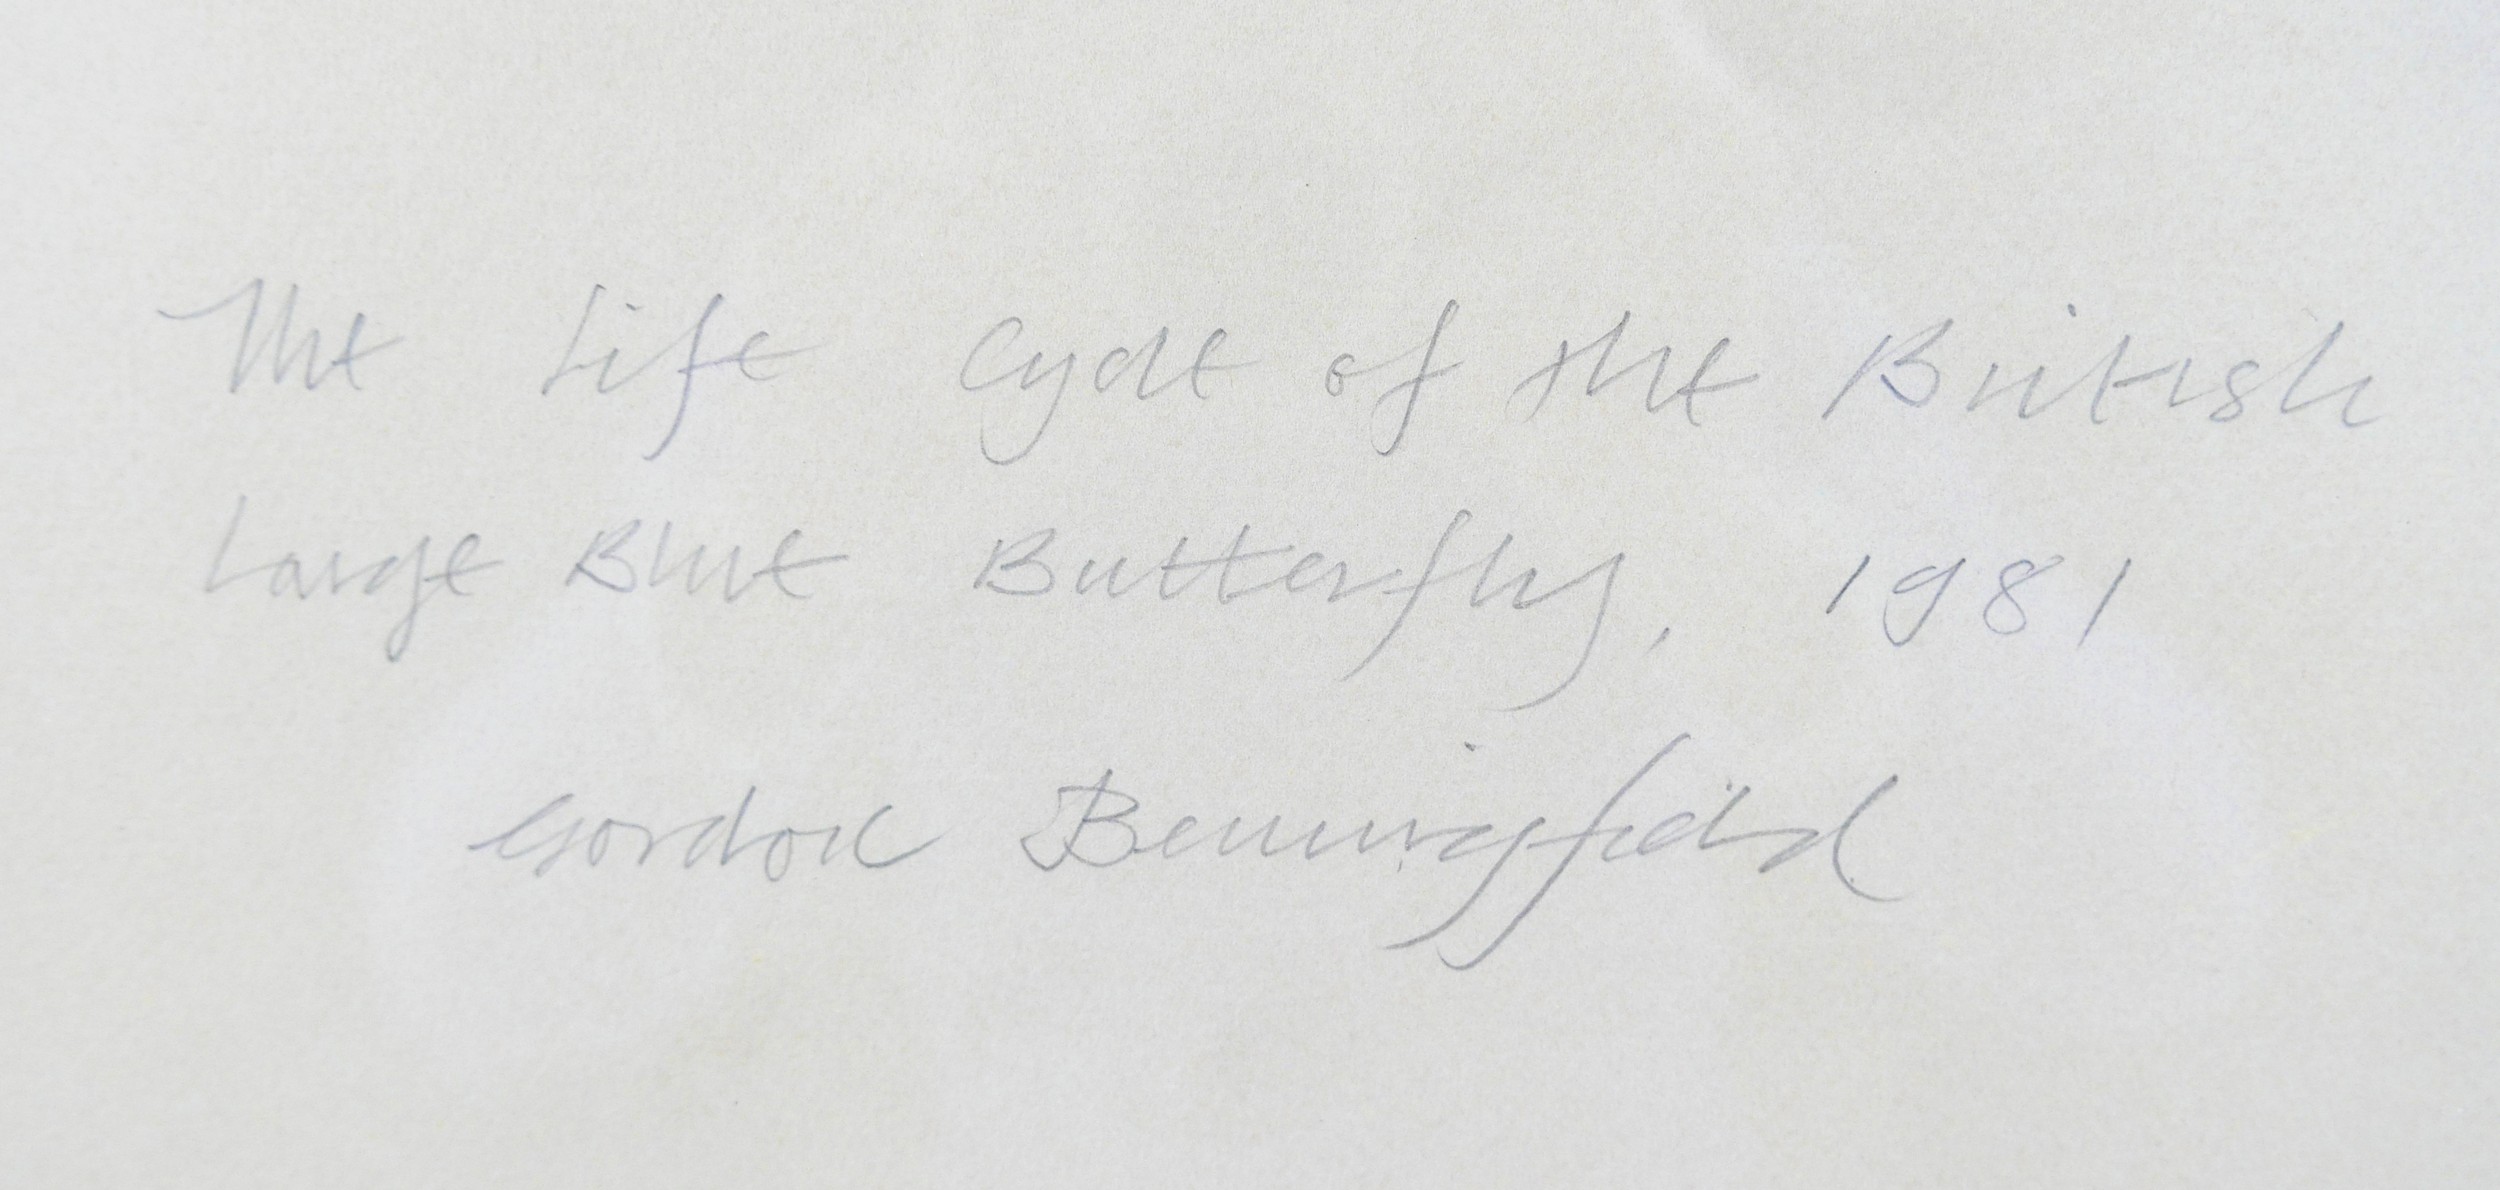 The Life Cycle of the British
Large Blue Butterfly, 1981
Gordon Benningfield